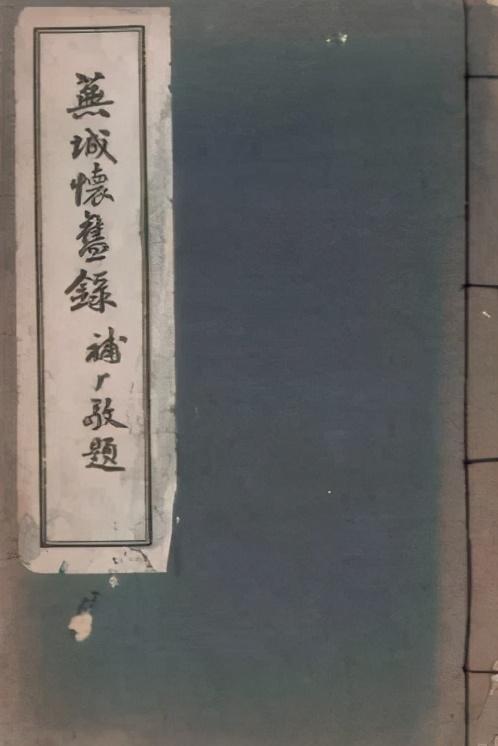 蕪城懷舊錄
補厂敬題